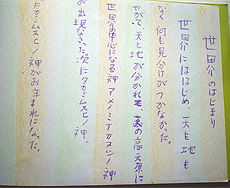 世界のはじまり
世界にははじめ、天も地も
なく何も見分けがつかなかった。
やがて、天と地が分かれると、高天原に
世界の中心になる神アメノミナカヌシノ神
が出現なさった。次にタカミムスヒノ神、
カミムスヒノ神がお生まれになった。